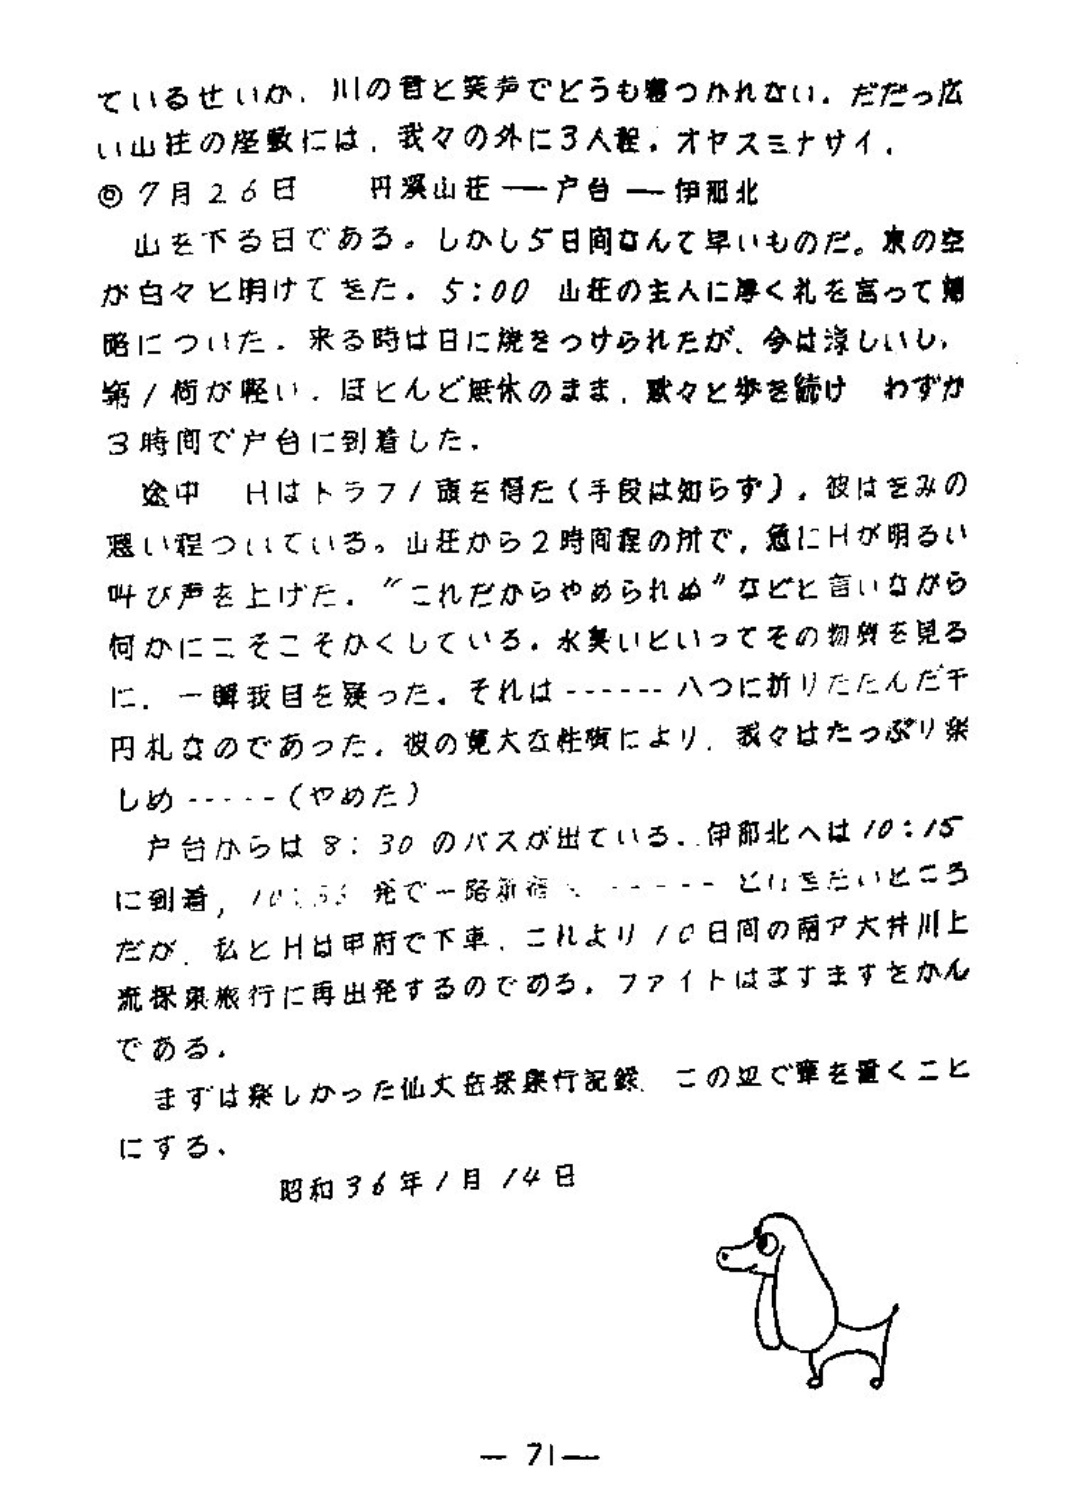 ているせいか、川の音と笑声でどうも寝つかれない。だだっ広
い山荘の座敷には、我々の外に3人程。オヤスミナサイ。
◎7月26日 丹溪山荘──戸台──伊那北
山を下る日である。しかし5日間なんて早いものだ。東の空
が白々と明けてきた。5:00 山荘の主人に厚く礼を言って帰
路についた。来る時は日に焼きつけられたが、今は涼しいし、
第1荷が軽い。ほとんど無休のまま、黙々と歩を続け わずか
3時間で戸台に到着した。
途中 Hはトラフ1頭を得た(手段は知らず)。彼はきみの
悪い程ついている。山荘から2時間程の所で、急にHが明るい
叫び声を上げた。〝これだからやめられぬ〟などと言いながら
何かにこそこそかくしている。水臭いといってその物質を見る
に、一瞬我目を疑った。それは------八つに折りたたんだ千
円札なのであった。彼の寛大な性質により、我々はたっぷり楽
しめ-----(やめた)
戸台からは8:30のバスが出ている。伊那北へは10:15
に到着, 発で一路新宿へ------といきたいところ
だが、私とHは甲府で下車、これより10日間の南ア大井川上
流採集旅行に再出発するのである。ファイトはますますさかん
である。
まずは楽しかった仙丈岳採集行記録、この辺で筆を置くこと
にする。
昭和36年1月14日
— 71 —